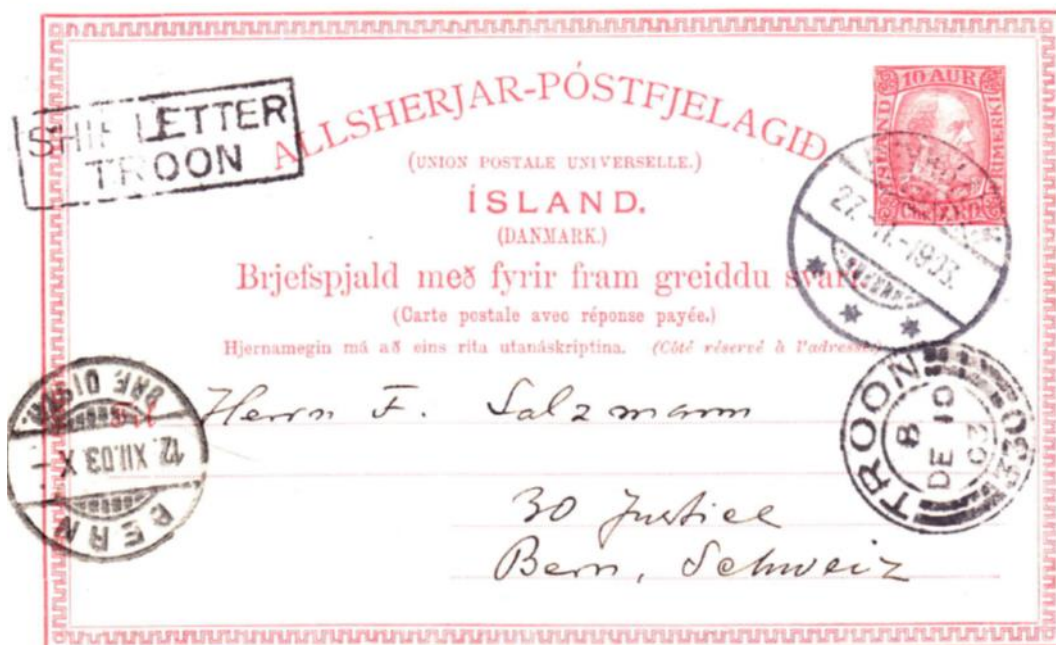 10 AUR
SHIP LETTER
TROON
ALLSHERJAR-PÓSTFJELAGIÐ
(UNION POSTALE UNIVERSELLE.)
ÍSLAND.
(DANMARK.)
27.-11.-1903.
Brjefspjald með fyrir fram greiddu svari.
(Carte postale avec réponse payée.)
Hjernamegin má að eins rita utanáskriptina. (Côté réservé à l'adresse)
TROON
8
DE 10
03
BERN
12. XII.03.X
Herrn F. Salzmann
30 Justice
Bern, Schweiz